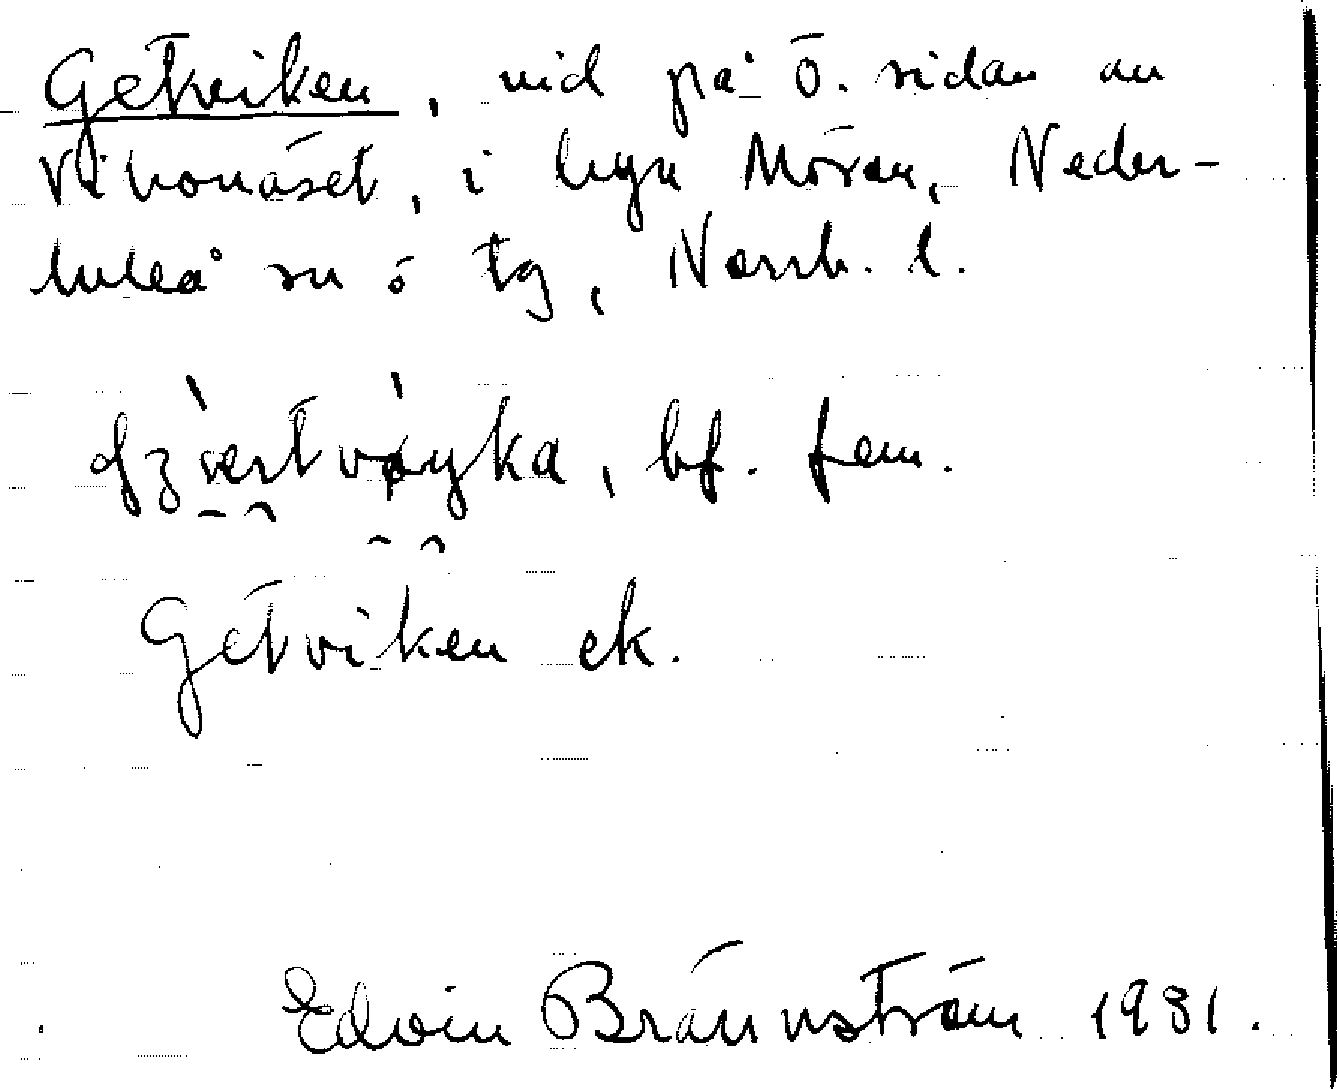 Getviken, vid på Ö. sidan av
Vibonäset, i byn Mörön, Neder-
luleå sn o tg, Norrb. l.
bf. fem.
Getviken ek.
Edvin Brännström 1981.